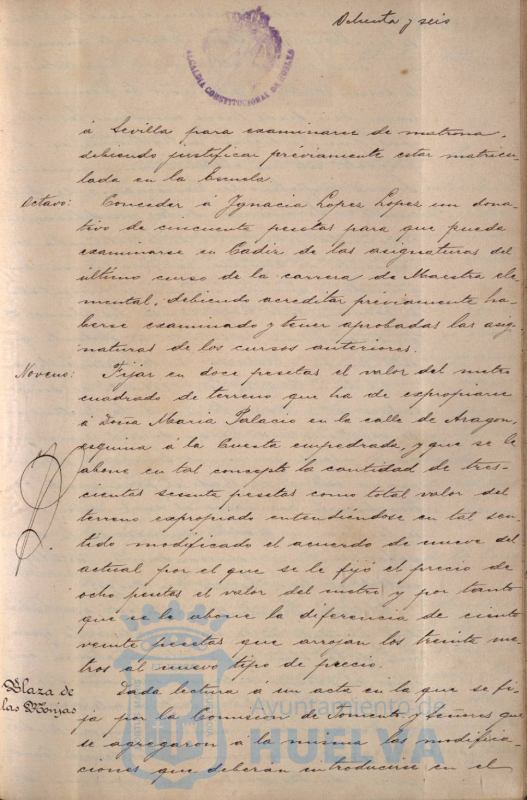 Ochenta y seis
ALCALDIA CONSTITUCIONAL DE HUELVA
á Sevilla para examinarse de matrona,
debiendo justificar préviamente estar matricu-
lada en la Escuela.
Octavo: Conceder á Ygnacia Lopez Lopez un dona-
tivo de cincuenta pesetas para que pueda
examinarse en Cadiz de las asignaturas del
último curso de la carrera de Maestra ele
mental, debiendo acreditar préviamente ha-
berse examinado y tener aprobadas las asig-
naturas de los cursos anteriores.
Noveno: Fijar en doce pesetas el valor del metro
cuadrado de terreno que ha de expropiarse
á Doña Maria Palacio en la calle de Aragon,
esquina á la Cuesta empedrada, y que se le
abone en tal concepto la cantidad de tres-
cientas sesenta pesetas como total valor del
terreno expropiado entendiéndose en tal sen-
tido modificado el acuerdo de nueve del
actual por el que se le fijó el precio de
ocho pesetas el valor del metro y por tanto
que se le abone la diferencia de ciento
veinte pesetas que arrojan los treinta me-
tros al nuevo tipo de precio.
Plaza de
las Monjas
Dada lectura á un acta en la que se fi-
ja por la Comision de Fomento y señores que
se agregaron á la misma las modifica-
ciones que deberán introducirse en el
Ayuntamiento de
HUELVA